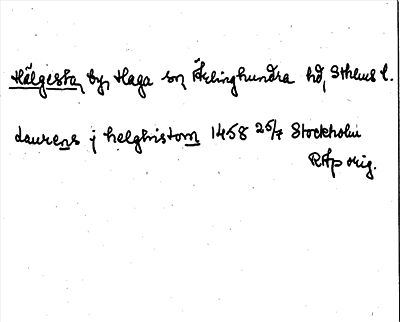 Hälgesta, by, Haga sn, Ärlinghundra hd, Sthlms l.
laurens j helghistom 1458 25/7 Stockholm
RAp orig.